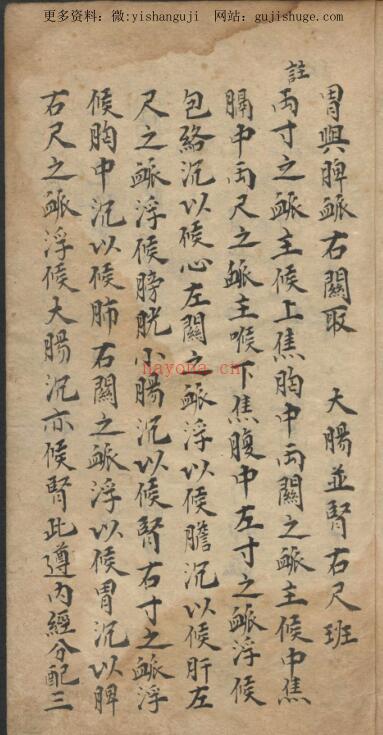 更多资料：微:yishanguji 网站：gujishuge.com
胃與脾脈右關取 大腸並腎右尺班
註
兩寸之脈主候上焦胸中兩關之脈主候中焦
膈中兩尺之脈主喉下焦腹中左寸之脈浮候
包絡沉以候心左關之脈浮以候膽沉以候肝左
尺之脈浮候膀胱小腸沉以候腎右寸之脈浮
候胸中沉以候肺右關之脈浮以候胃沉以脾
右尺之脈浮候大腸沉亦候腎此遵內經分配三
hayona.cn